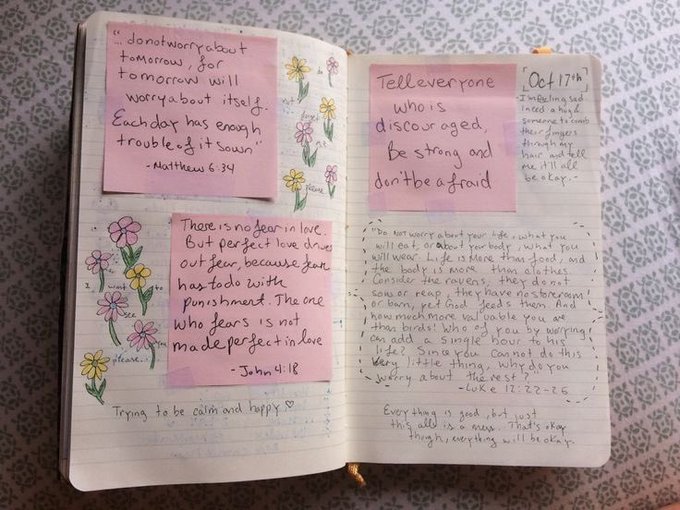 "...do not worry about
tomorrow, for
tomorrow will
worry about itself.
Each day has enough
trouble of it's own"
-Matthew 6:34
do
not
forget
me
please
There is no fear in love.
But perfect love drives
out fear, because fear
has to do with
punishment. The one
who fears is not
made perfect in love
-John 4:18
I want to
see you
please...
Trying to be calm and happy ♡
Tell everyone
who is
discouraged,
Be strong and
don't be afraid
[Oct 17th]
-I'm feeling sad
I need a hug &
someone to comb
their fingers
through my
hair and tell
me it'll all
be okay.-
"Do not worry about your life, what you
will eat, or about your body, what you
will wear. Life is more than food, and
the body is more than clothes.
Consider the ravens, they do not
sow or reap, they have no storeroom
or barn, yet God feeds them. And
how much more valuable you are
than birds! Who of you by worrying
can add a single hour to his
life? Since you cannot do this
very little thing, why do you
worry about the rest?"
-Luke 12:22-26
Everything is good, but just
this all is a mess. That's okay
though, everything will be okay.